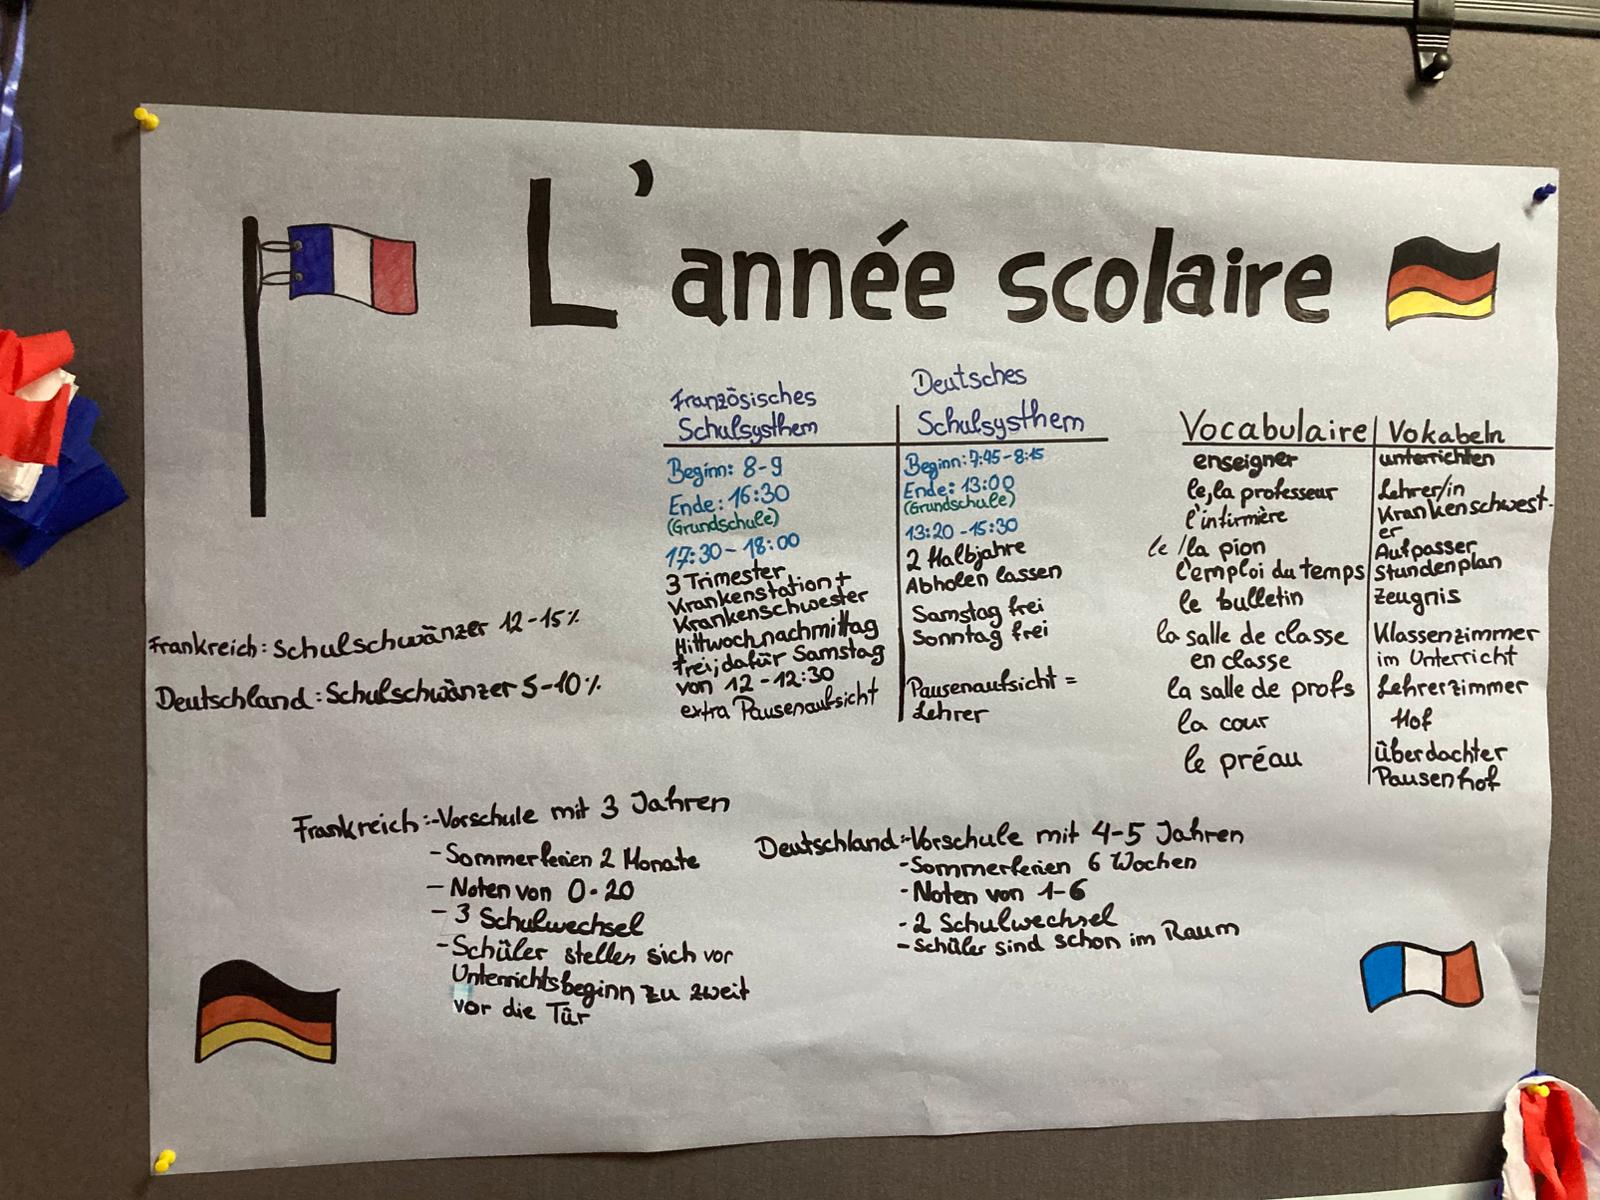 L'année scolaire
Französisches
Schulsysthem
Beginn: 8-9
Ende: 16:30
(Grundschule)
17:30-18:00
3 Trimester
Krankenstation +
Krankenschwester
Mittwochnachmittag
frei; dafür Samstag
von 12-12:30
extra Pausenaufsicht
Deutsches
Schulsysthem
Beginn: 7:45-8:15
Ende: 13:00
(Grundschule)
13:20-15:30
2 Halbjahre
Abholen lassen
Samstag frei
Sonntag frei
Pausenaufsicht =
Lehrer
Vocabulaire Vokabeln
enseigner unterrichten
le, la professeur Lehrer/in
l'infirmière Krankenschwest-
er
le/la pion Aufpasser
l'emploi du temps Stundenplan
le bulletin Zeugnis
la salle de classe Klassenzimmer
en classe im Unterricht
la salle de profs Lehrerzimmer
la cour Hof
le préau überdachter
Pausenhof
Frankreich: Schulschwänzer 12-15%
Deutschland: Schulschwänzer 5-10%
Frankreich:-Vorschule mit 3 Jahren
-Sommerferien 2 Monate
-Noten von 0-20
-3 Schulwechsel
-Schüler stellen sich vor
Unterrichtsbeginn zu zweit
vor die Tür
Deutschland:-Vorschule mit 4-5 Jahren
-Sommerferien 6 Wochen
-Noten von 1-6
-2 Schulwechsel
-Schüler sind schon im Raum